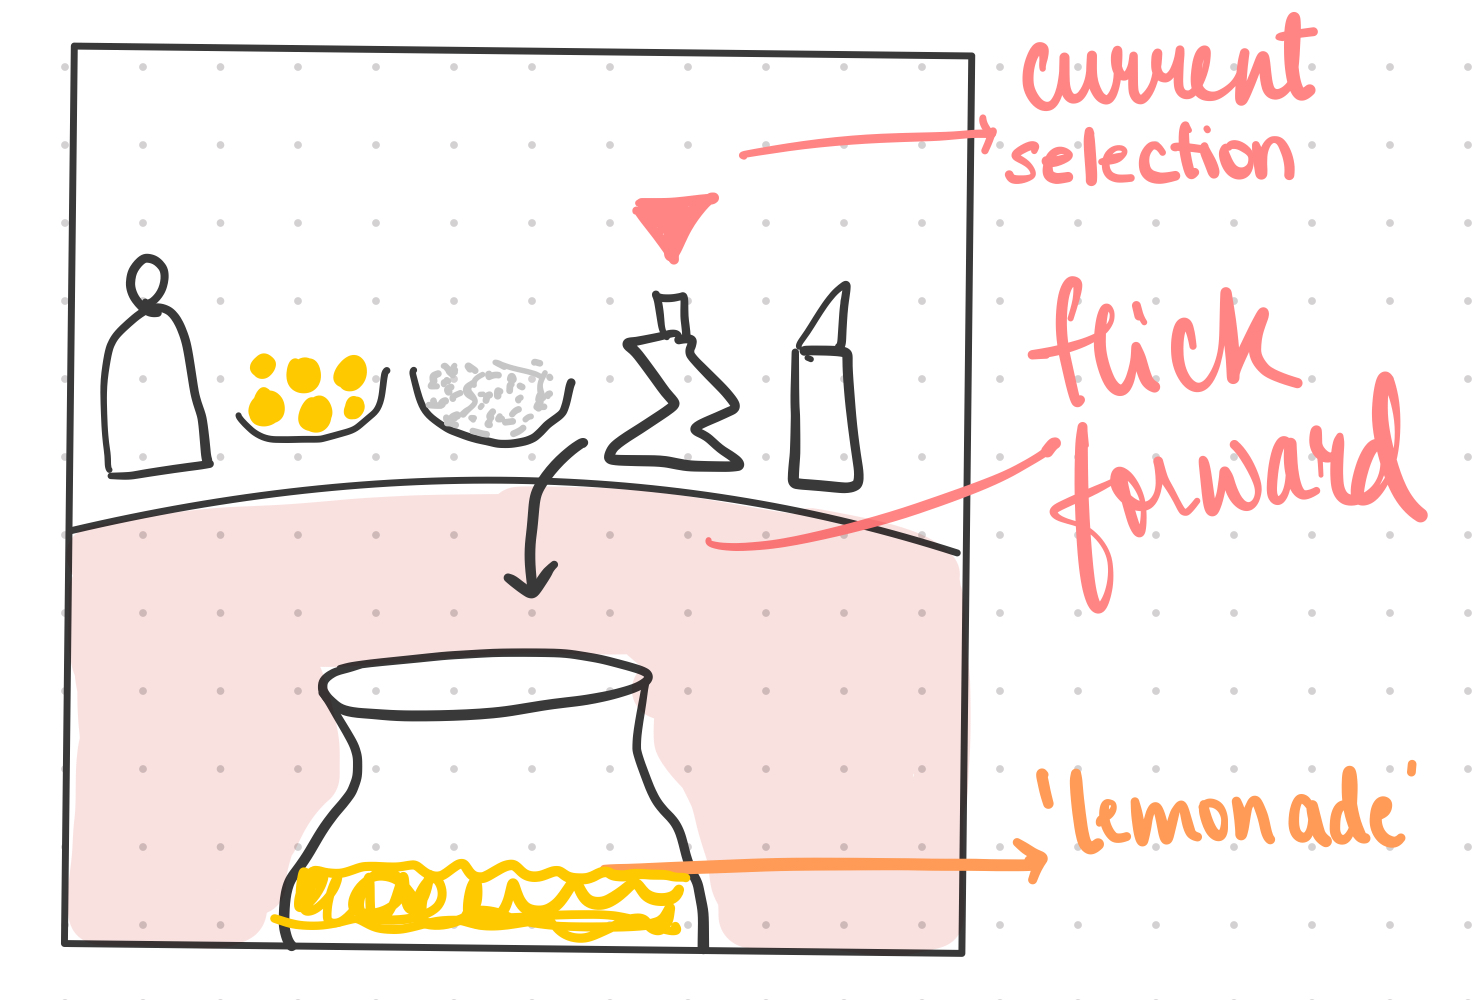 current
selection
flick
forward
'lemonade'